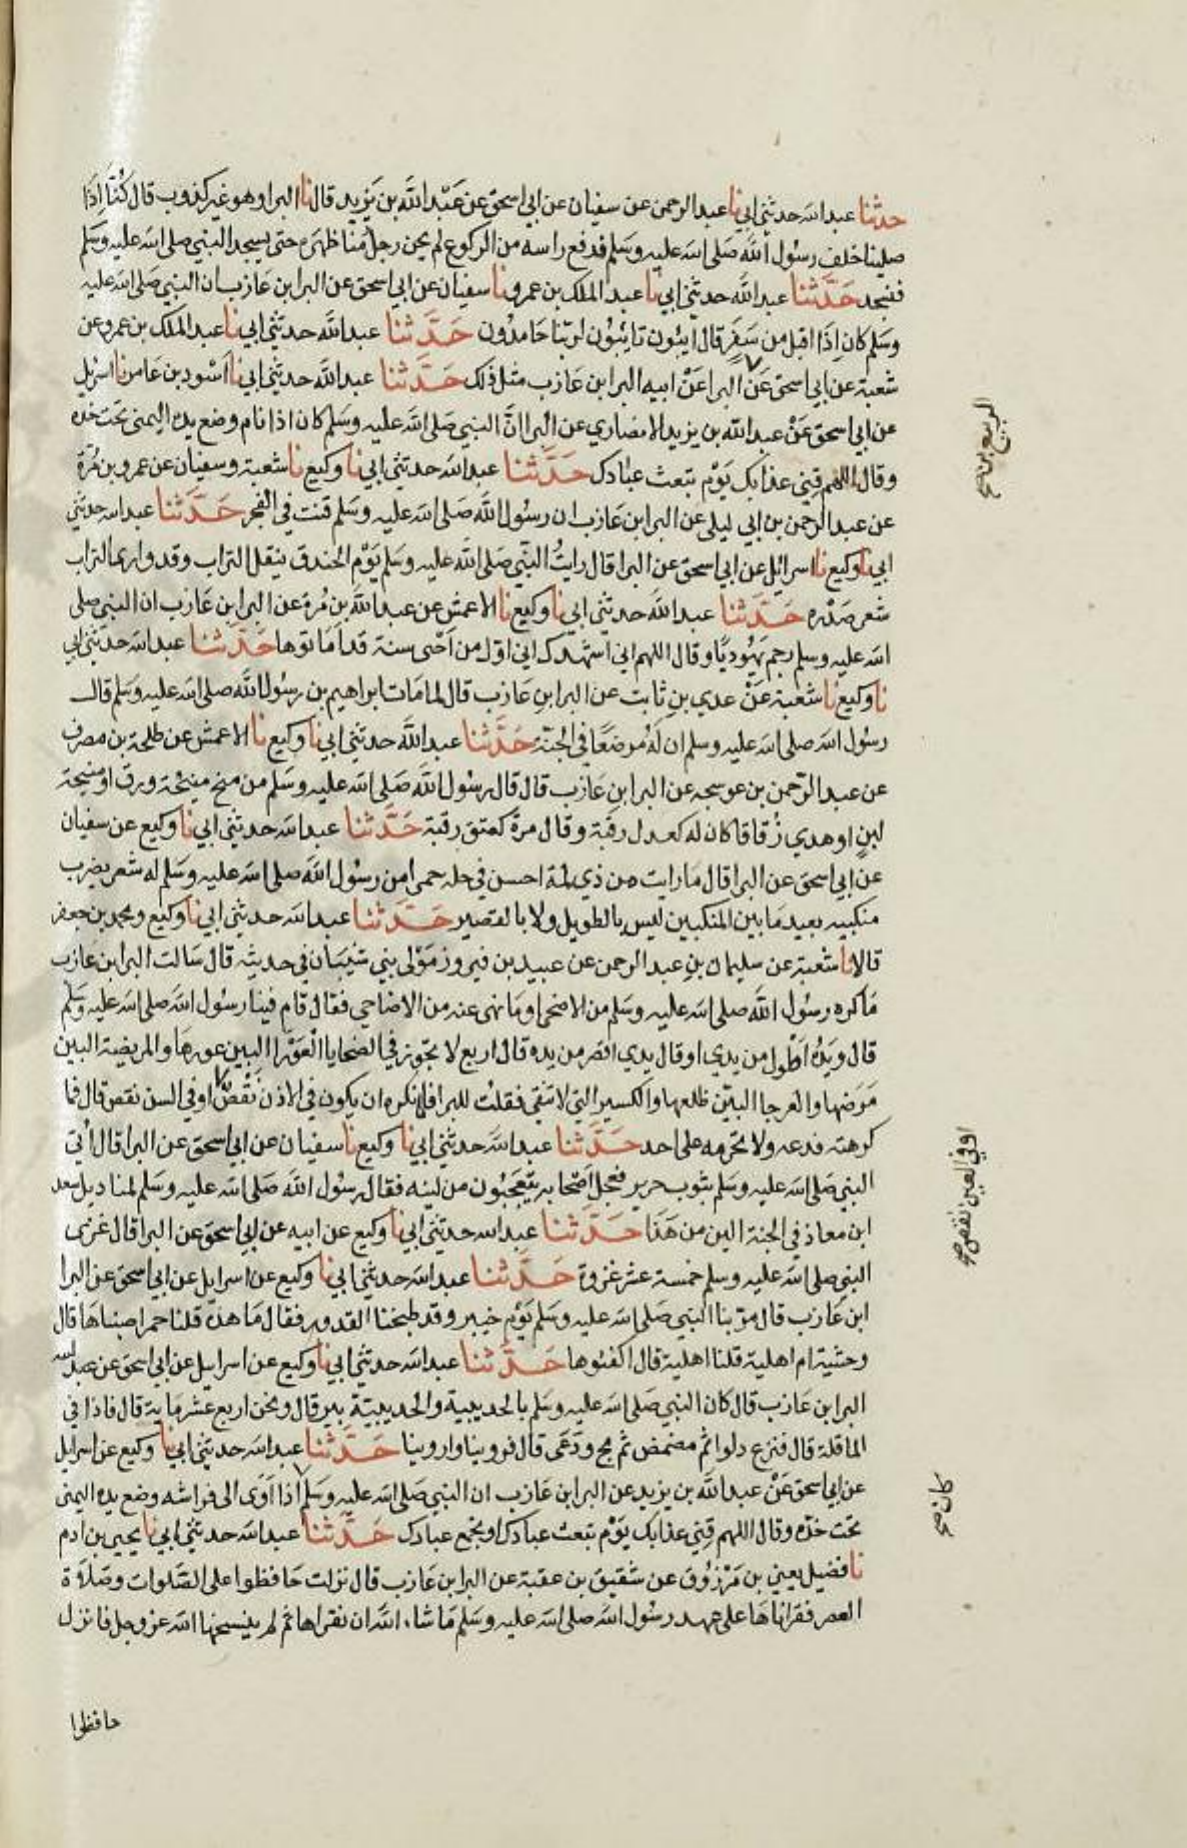 حدثنا عبد الله حدثني ابي نا عبد الرحمن عن سفيان عن ابي اسحق عن عبد الله بن يزيد قال نا البرا وهو غير كذوب قال كنا اذا
صلينا خلف رسول الله صلى الله عليه وسلم فرفع راسه من الركوع لم يحن رجل منا ظهره حتى يسجد النبي صلى الله عليه وسلم
فنسجد حدثنا عبد الله حدثني ابي نا عبد الملك بن عمرو نا سفيان عن ابي اسحق عن البرا بن عازب ان النبي صلى الله عليه
وسلم كان اذا اقبل من سفر قال ايبون تايبون لربنا حامدون حدثنا عبد الله حدثني ابي نا عبد الملك بن عمرو عن
شعبة عن ابي اسحق عن البرا عن ابيه البرا بن عازب مثل ذلك حدثنا عبد الله حدثني ابي نا اسود بن عامر نا اسرايل
عن ابي اسحق عن عبد الله بن يزيد الانصاري عن البرا ان النبي صلى الله عليه وسلم كان اذا نام وضع يده اليمنى تحت خده
وقال اللهم قني عذابك يوم تبعث عبادك حدثنا عبد الله حدثني ابي نا وكيع نا شعبة وسفيان عن عمرو بن مرة
عن عبد الرحمن بن ابي ليلى عن البرا بن عازب ان رسول الله صلى الله عليه وسلم قنت في الفجر حدثنا عبد الله حدثني
ابي نا وكيع نا اسرائل عن ابي اسحق عن البرا قال رايت النبي صلى الله عليه وسلم يوم الخندق ينقل التراب وقد وارى التراب
شعر صدره حدثنا عبد الله حدثني ابي نا وكيع نا الاعمش عن عبد الله بن مرة عن البرا بن عازب ان النبي صلى
الله عليه وسلم رجم يهوديا وقال اللهم اني اشهدك اني اول من احيى سنة قد اماتوها حدثنا عبد الله حدثني ابي
نا وكيع نا شعبة عن عدي بن ثابت عن البرا بن عازب قال لما مات ابراهيم بن رسول الله صلى الله عليه وسلم قال
رسول الله صلى الله عليه وسلم ان له مرضعا في الجنة حدثنا عبد الله حدثني ابي نا وكيع نا الاعمش عن طلحة بن مصرف
عن عبد الرحمن بن عوسجه عن البرا بن عازب قال قال رسول الله صلى الله عليه وسلم من منح منيحة ورق او منيحة
لبن او هدي زقاقا كان له كعدل رقبة وقال مرة كعتق رقبة حدثنا عبد الله حدثني ابي نا وكيع عن سفيان
عن ابي اسحق عن البرا قال ما رايت من ذي لمة احسن في حله حمرا من رسول الله صلى الله عليه وسلم له شعر يضرب
منكبيه بعيد ما بين المنكبين ليس بالطويل ولا بالقصير حدثنا عبد الله حدثني ابي نا وكيع ومحمد بن جعفر
قالا نا شعبة عن سليمان بن عبد الرحمن عن عبيد بن فيروز مولى بني شيبان في حديثه قال سالت البرا بن عازب
ما كره رسول الله صلى الله عليه وسلم من الاضحى او ما نهى عنه من الاضاحي فقال قام فينا رسول الله صلى الله عليه وسلم
قال ويده اطول من يدي او قال يدي اقصر من يده قال اربع لا تجوز في الضحايا العورا البين عورها والمريضة البين
مرضها والعرجا البين ظلعها والكسير التي لا تنقي فقلت للبرا فانا نكره ان يكون في الاذن نقص او في السن نقص قال فما
كرهته فدعه ولا تحرمه على احد حدثنا عبد الله حدثني ابي نا وكيع نا سفيان عن ابي اسحق عن البرا قال اتي
النبي صلى الله عليه وسلم بثوب حرير فجعل اصحابه يتعجبون من لينه فقال رسول الله صلى الله عليه وسلم لمناديل سعد
ابن معاذ في الجنة الين من هذا حدثنا عبد الله حدثني ابي نا وكيع عن ابيه عن ابي اسحق عن البرا قال غزى
النبي صلى الله عليه وسلم خمسة عشر غزوة حدثنا عبد الله حدثني ابي نا وكيع عن اسرايل عن ابي اسحق عن البرا
ابن عازب قال مر بنا النبي صلى الله عليه وسلم يوم خيبر وقد طبخنا القدور فقال ما هذه قلنا حمرا اصبناها قال
وحشية ام اهلية قلنا اهلية قال اكفئوها حدثنا عبد الله حدثني ابي نا وكيع عن اسرايل عن ابي اسحق عن عبد الله
البرا بن عازب قال كان النبي صلى الله عليه وسلم بالحديبية والحديبية بير قال ونحن اربع عشر ماية قال فاذا في
الما قلة قال فنزع دلوا ثم مضمض ثم مج ودعى قال فروينا واروينا حدثنا عبد الله حدثني ابي نا وكيع عن اسرايل
عن ابي اسحق عن عبد الله بن يزيد عن البرا بن عازب ان النبي صلى الله عليه وسلم اذا اوى الى فراشه وضع يده اليمنى
تحت خده وقال اللهم قني عذابك يوم تبعث عبادك او تجمع عبادك حدثنا عبد الله حدثني ابي نا يحيى بن ادم
نا فضيل يعني بن مرزوق عن شقيق بن عقبة عن البرا بن عازب قال نزلت حافظوا على الصلوات وصلاة
العصر فقراناها على عهد رسول الله صلى الله عليه وسلم ما شاء الله ان نقراها ثم لم ينسخها الله عز وجل فانزل
حافظوا
الربيع بن صح
او في العين نقص صح
كان صح